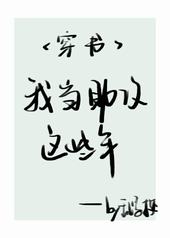 <穿书>
我当助攻
这些年
——by